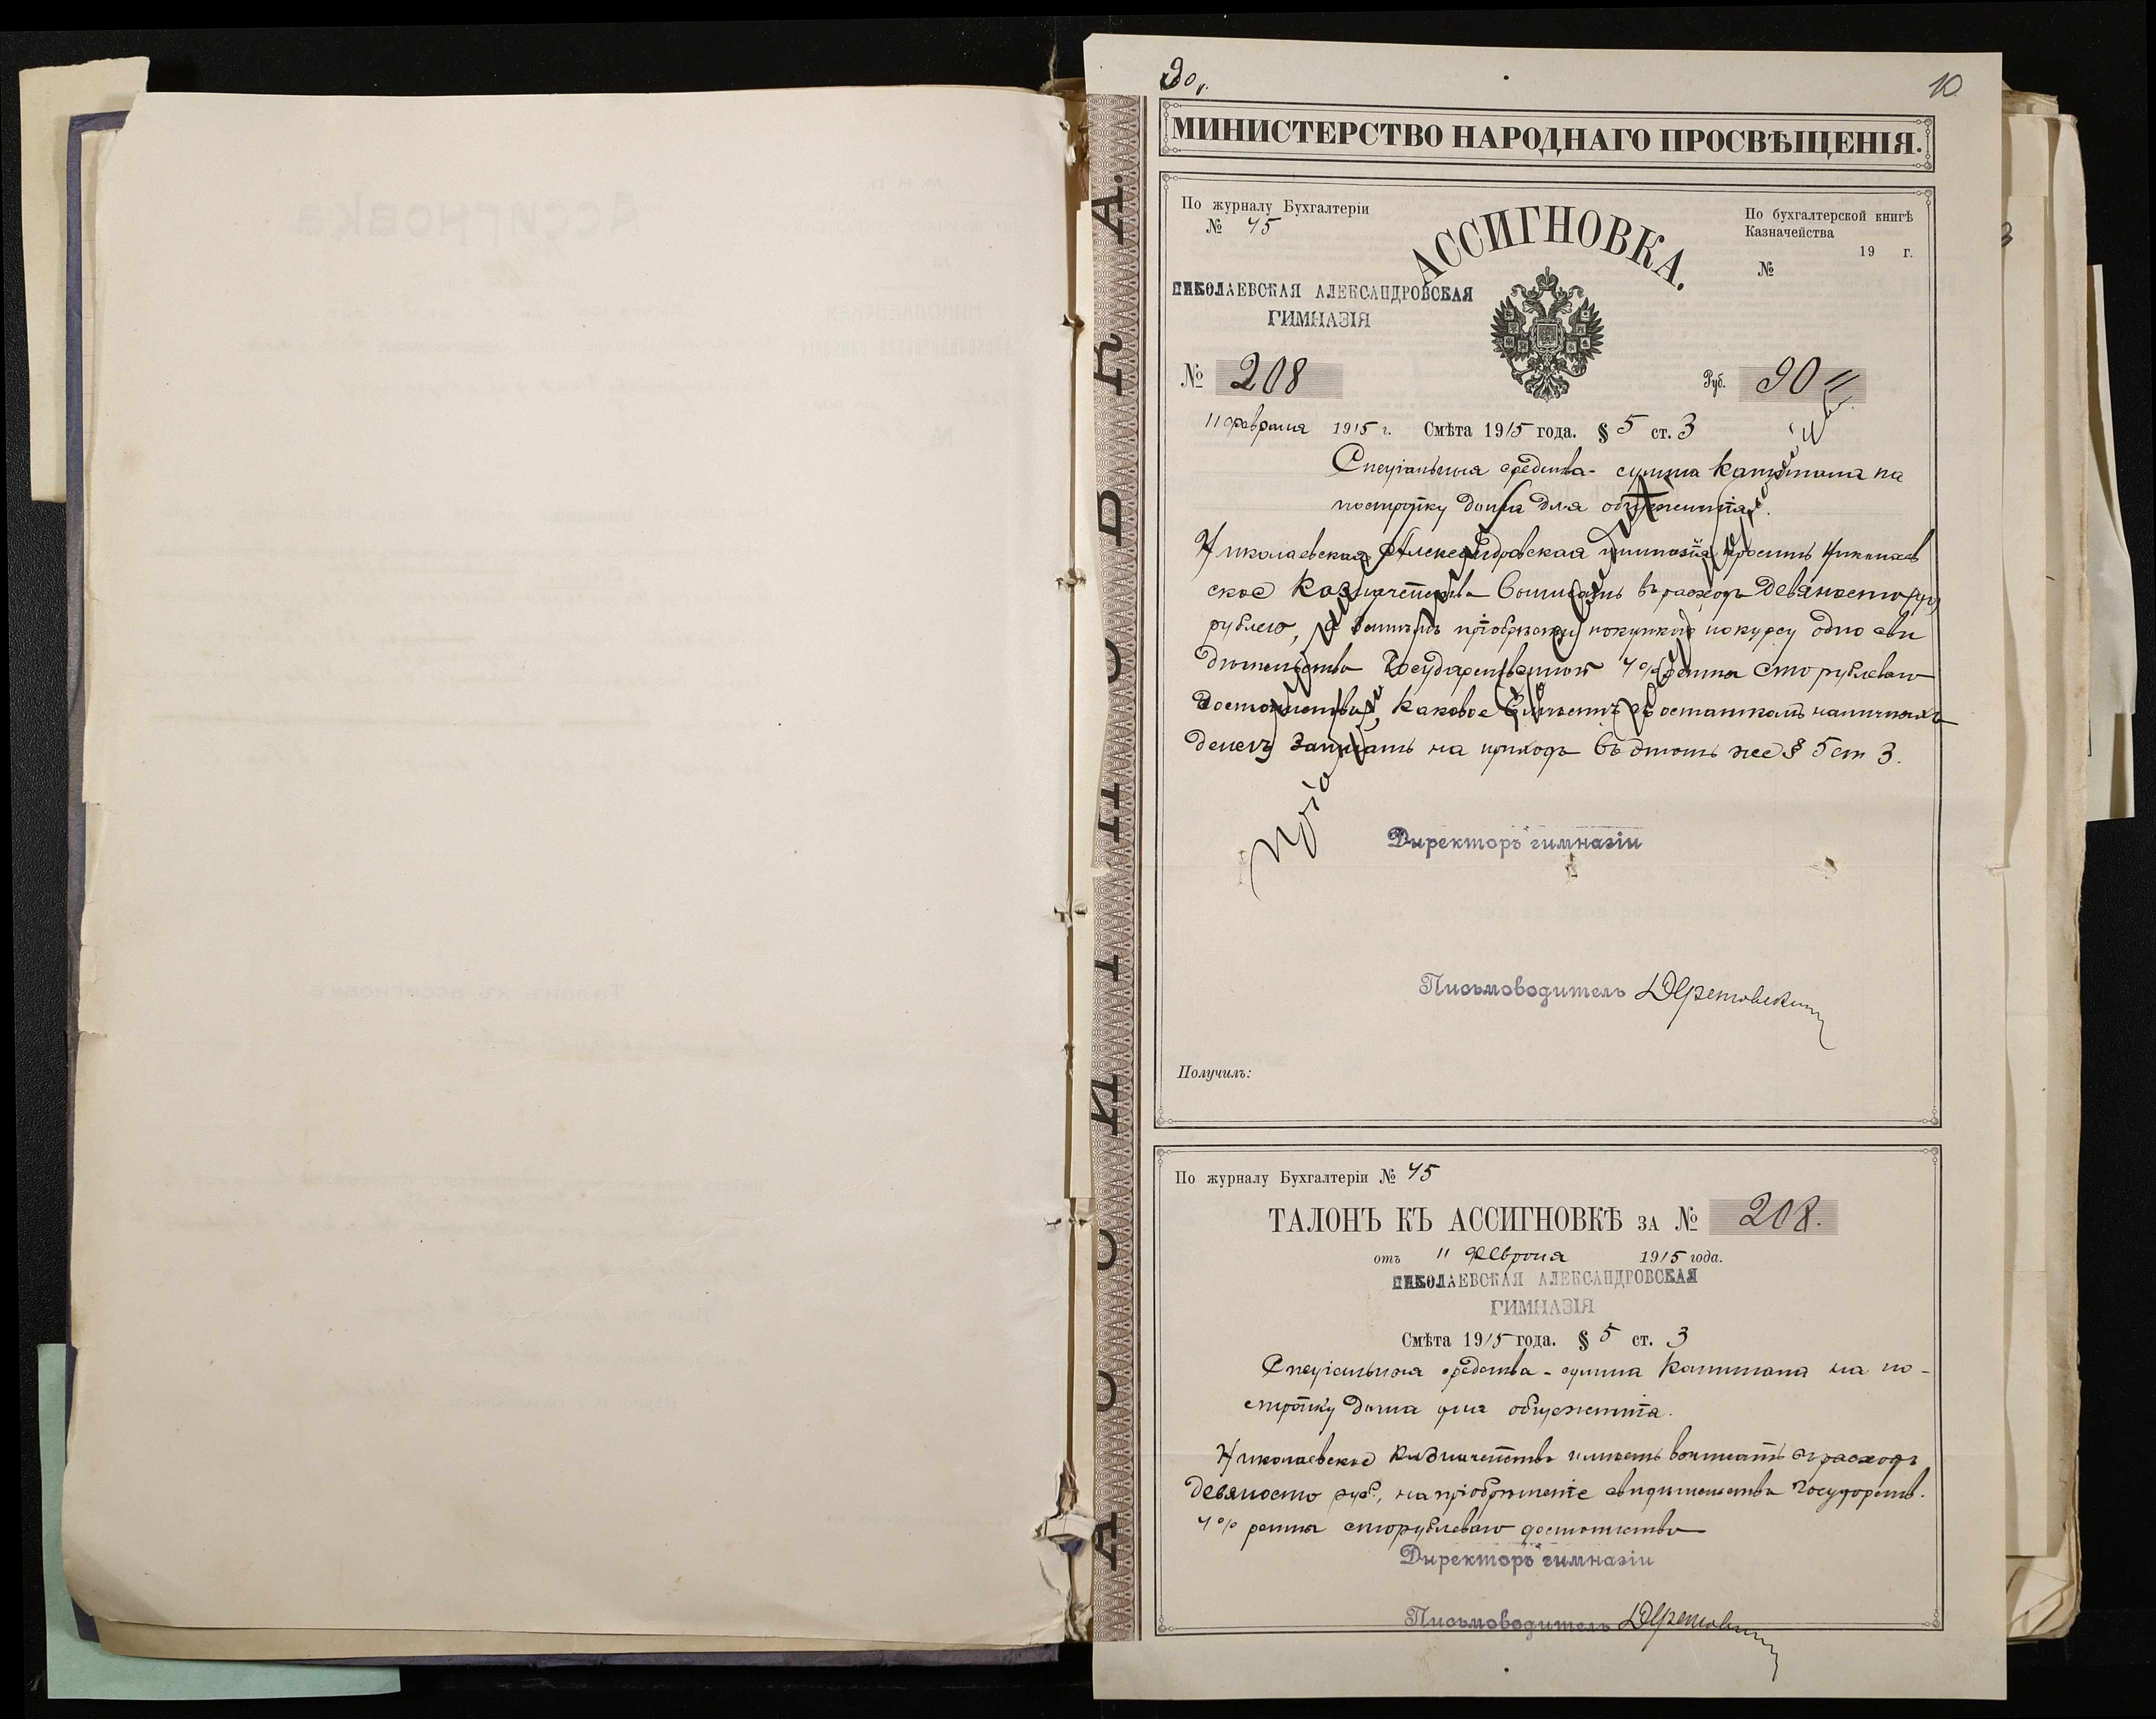 90 р.
10
МИНИСТЕРСТВО НАРОДНАГО ПРОСВѢЩЕНІЯ.
По журналу Бухгалтеріи
№ 45
АССИГНОВКА.
По бухгалтерской книгѣ
Казначейства
19 г.
№
НИКОЛАЕВСКАЯ АЛЕКСАНДРОВСКАЯ
ГИМНАЗІЯ
№ 208
Руб. 90 "
11 февраля 1915 г. Смѣта 1915 года. § 5 ст. 3
Спеціальныя средства - сумма капитала на
постройку дома для общежитія.
Николаевская Александровская гимназія проситъ Николаев
ское Казначейство выписать въ расходъ девяносто (90)
рублей, а затѣмъ пріобрѣсти покупкой по курсу одно сви
дѣтельство Государственной 4% ренты сто рублеваго
достоинства, каковое вмѣстѣ съ остаткомъ наличныхъ
денегъ записать на приходъ въ этотъ же § 5 ст 3.
Директоръ гимназіи
Письмоводитель
Получилъ:
По журналу Бухгалтеріи № 45
ТАЛОНЪ КЪ АССИГНОВКѢ ЗА № 208.
отъ 11 февраля 1915 года.
НИКОЛАЕВСКАЯ АЛЕКСАНДРОВСКАЯ
ГИМНАЗІЯ
Смѣта 1915 года. § 5 ст. 3
Спеціальныя средства - сумма капитала на по-
стройку дома для общежитія.
Николаевское Казначейство имѣетъ выписать въ расходъ
девяносто руб., на пріобрѣтеніе свидѣтельства Государств.
4% ренты сторублеваго достоинства
Директоръ гимназіи
Письмоводитель
АССИГНОВКА.